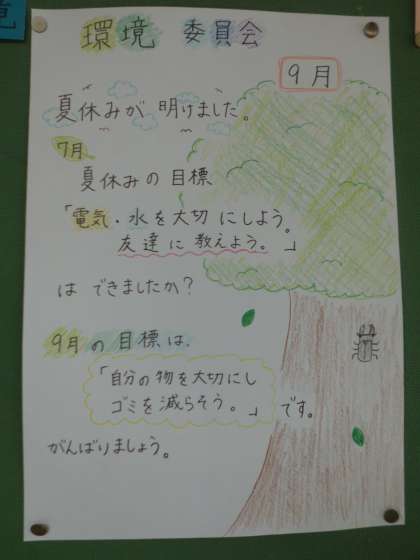 環境 委員会
9月
夏休みが 明けました。
7月
夏休みの目標
「電気・水を大切にしよう。
友達に教えよう。」
は できましたか?
9月の目標は、
「自分の物を大切にし
ゴミを減らそう。」です。
がんばりましょう。